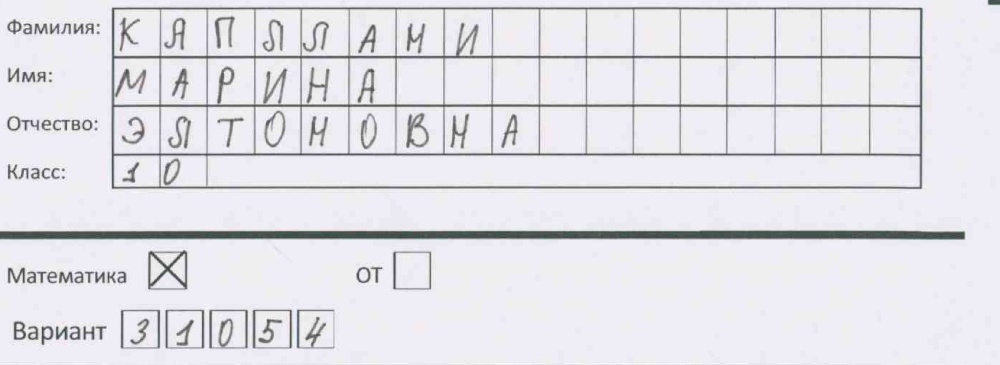 Фамилия: КЯПЛЛАНИ
Имя: МАРИНА
Отчество: ЭЛТОНОВНА
Класс: 10
Математика ☒ ОТ ☐
Вариант 31054